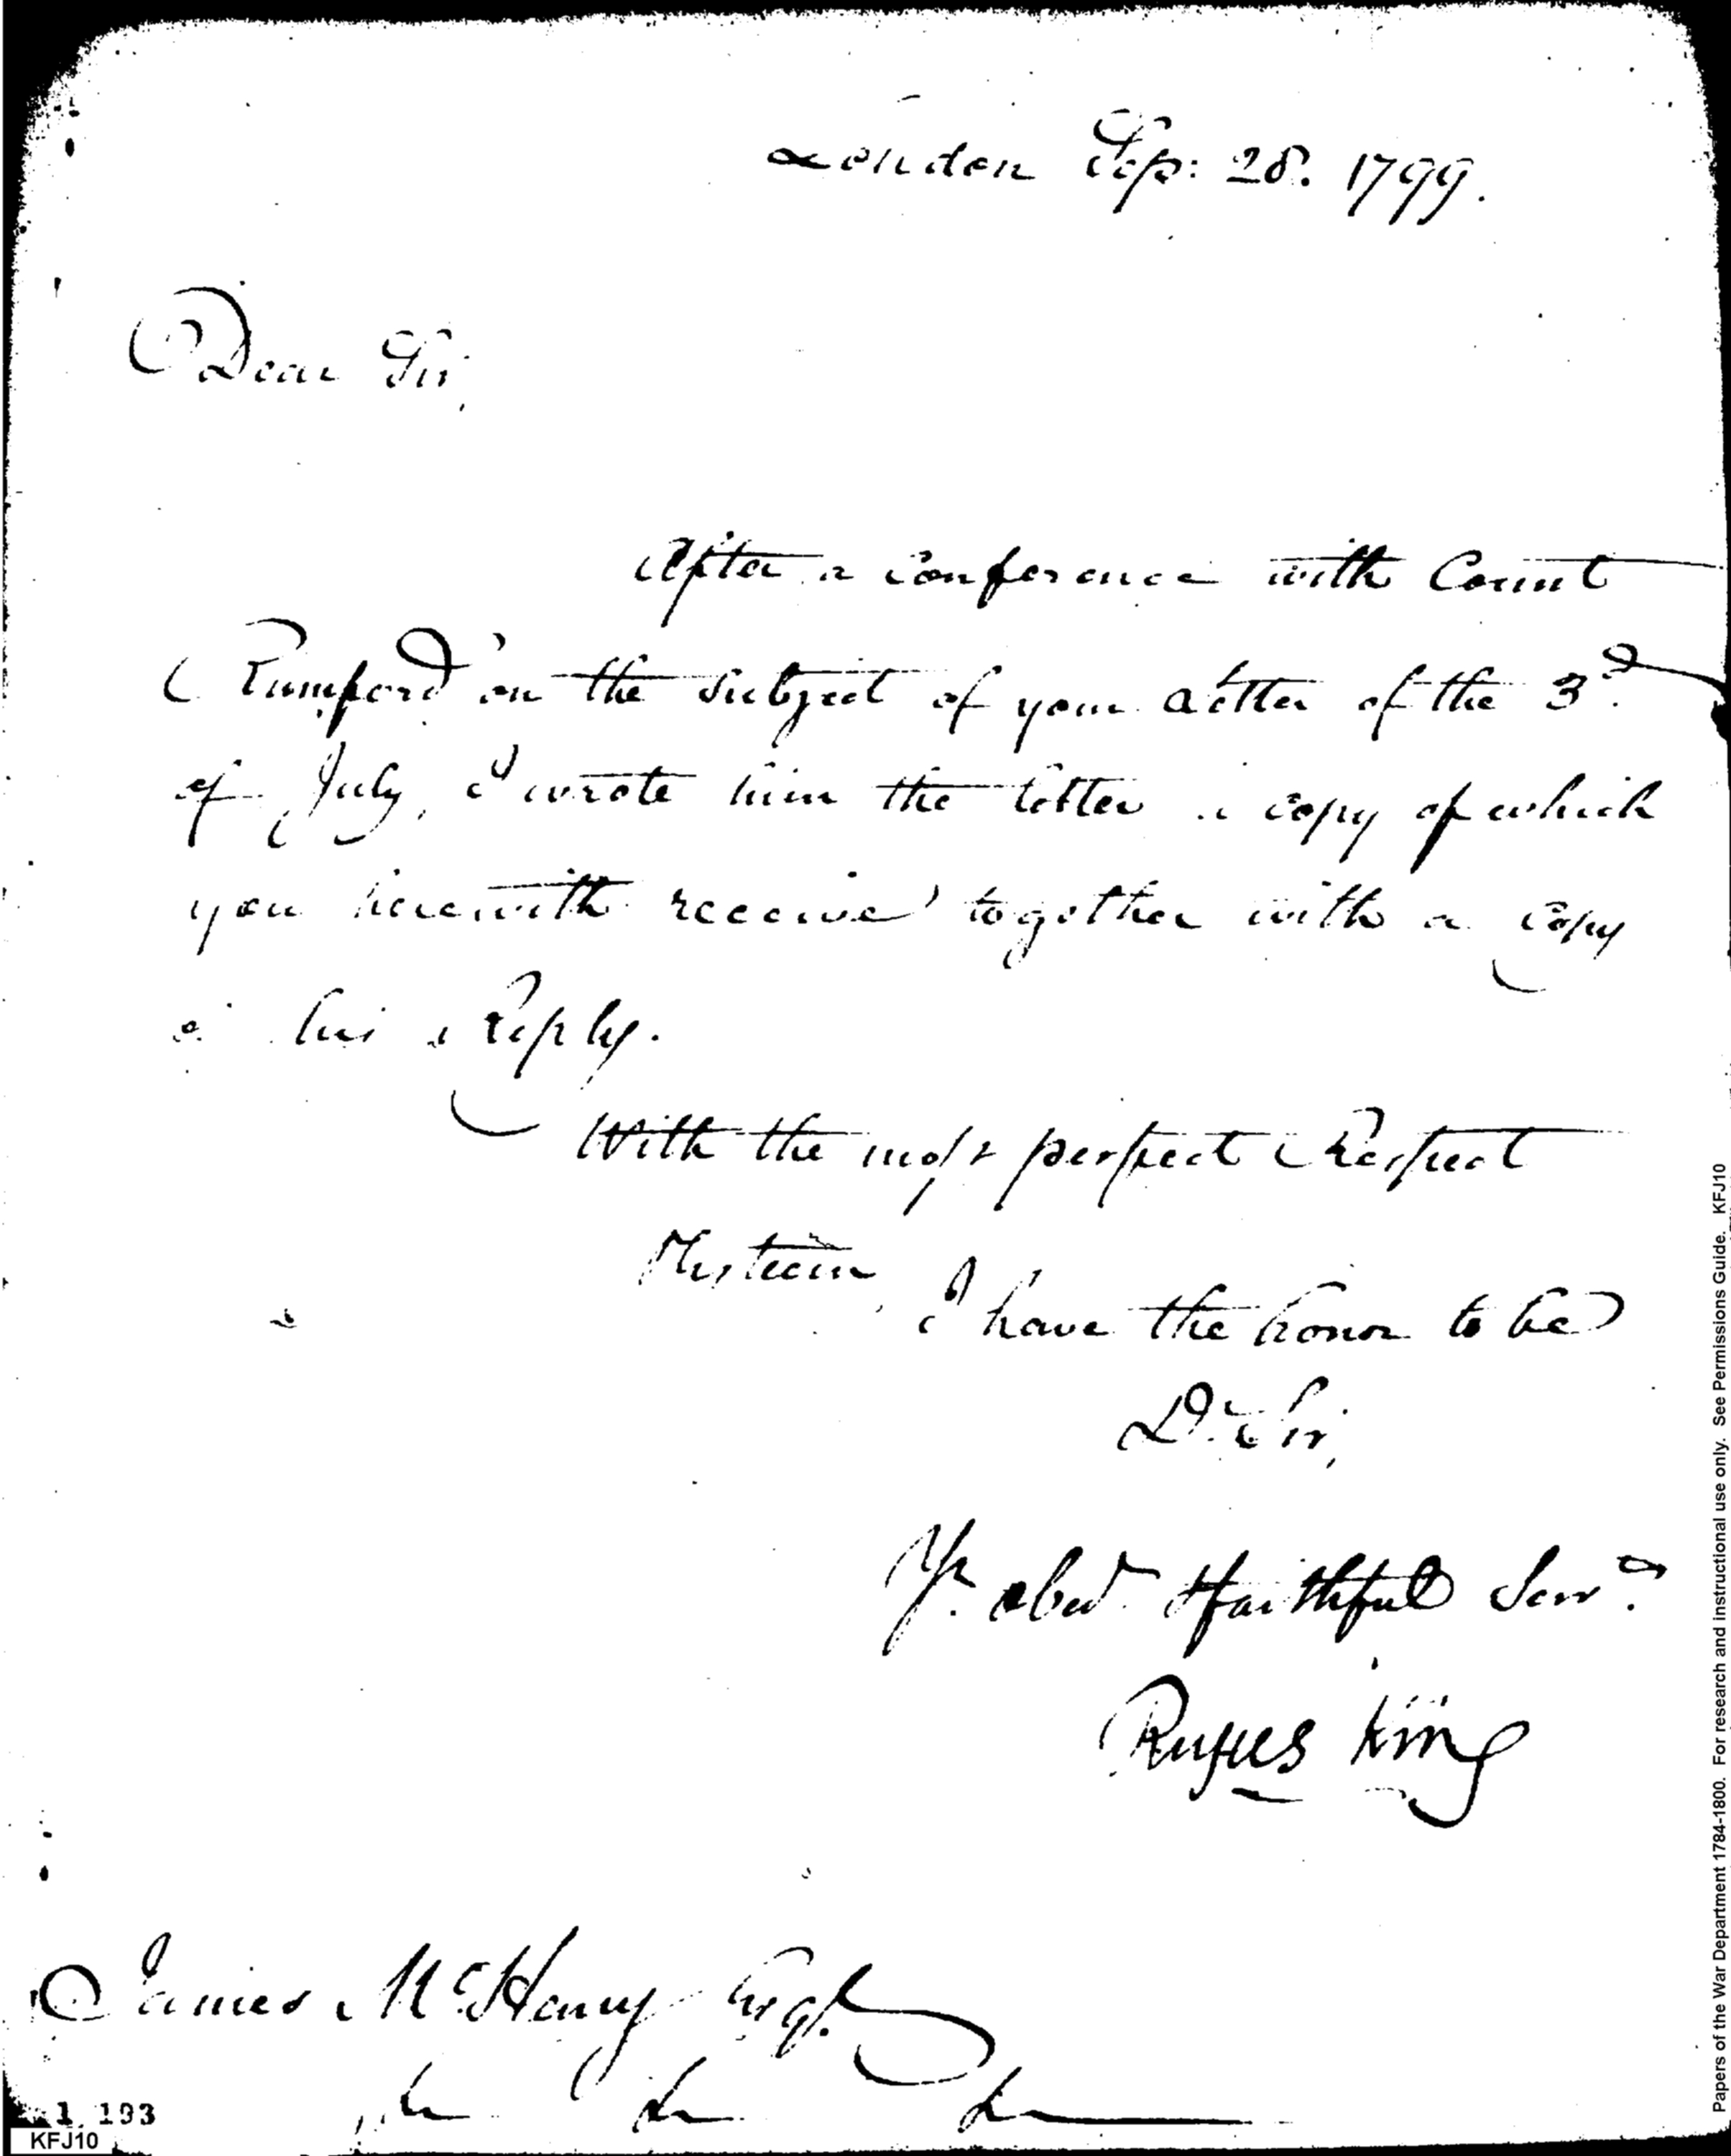 London Sep: 28. 1799.
Dear Sir,
After a Conference with Count
Rumford on the subject of your Letter of the 3d.
of July, I wrote him the letter a copy of which
you herewith receive together with a Copy
of his Reply.
With the most perfect Respect
& Esteem, I have the honor to be
Dr. Sir,
Yr. obed. & faithful Servt.
Rufus King
James McHenry Esqr.
&c &c &c
1 193
KFJ10
Papers of the War Department 1784-1800. For research and instructional use only. See Permissions Guide. KFJ10